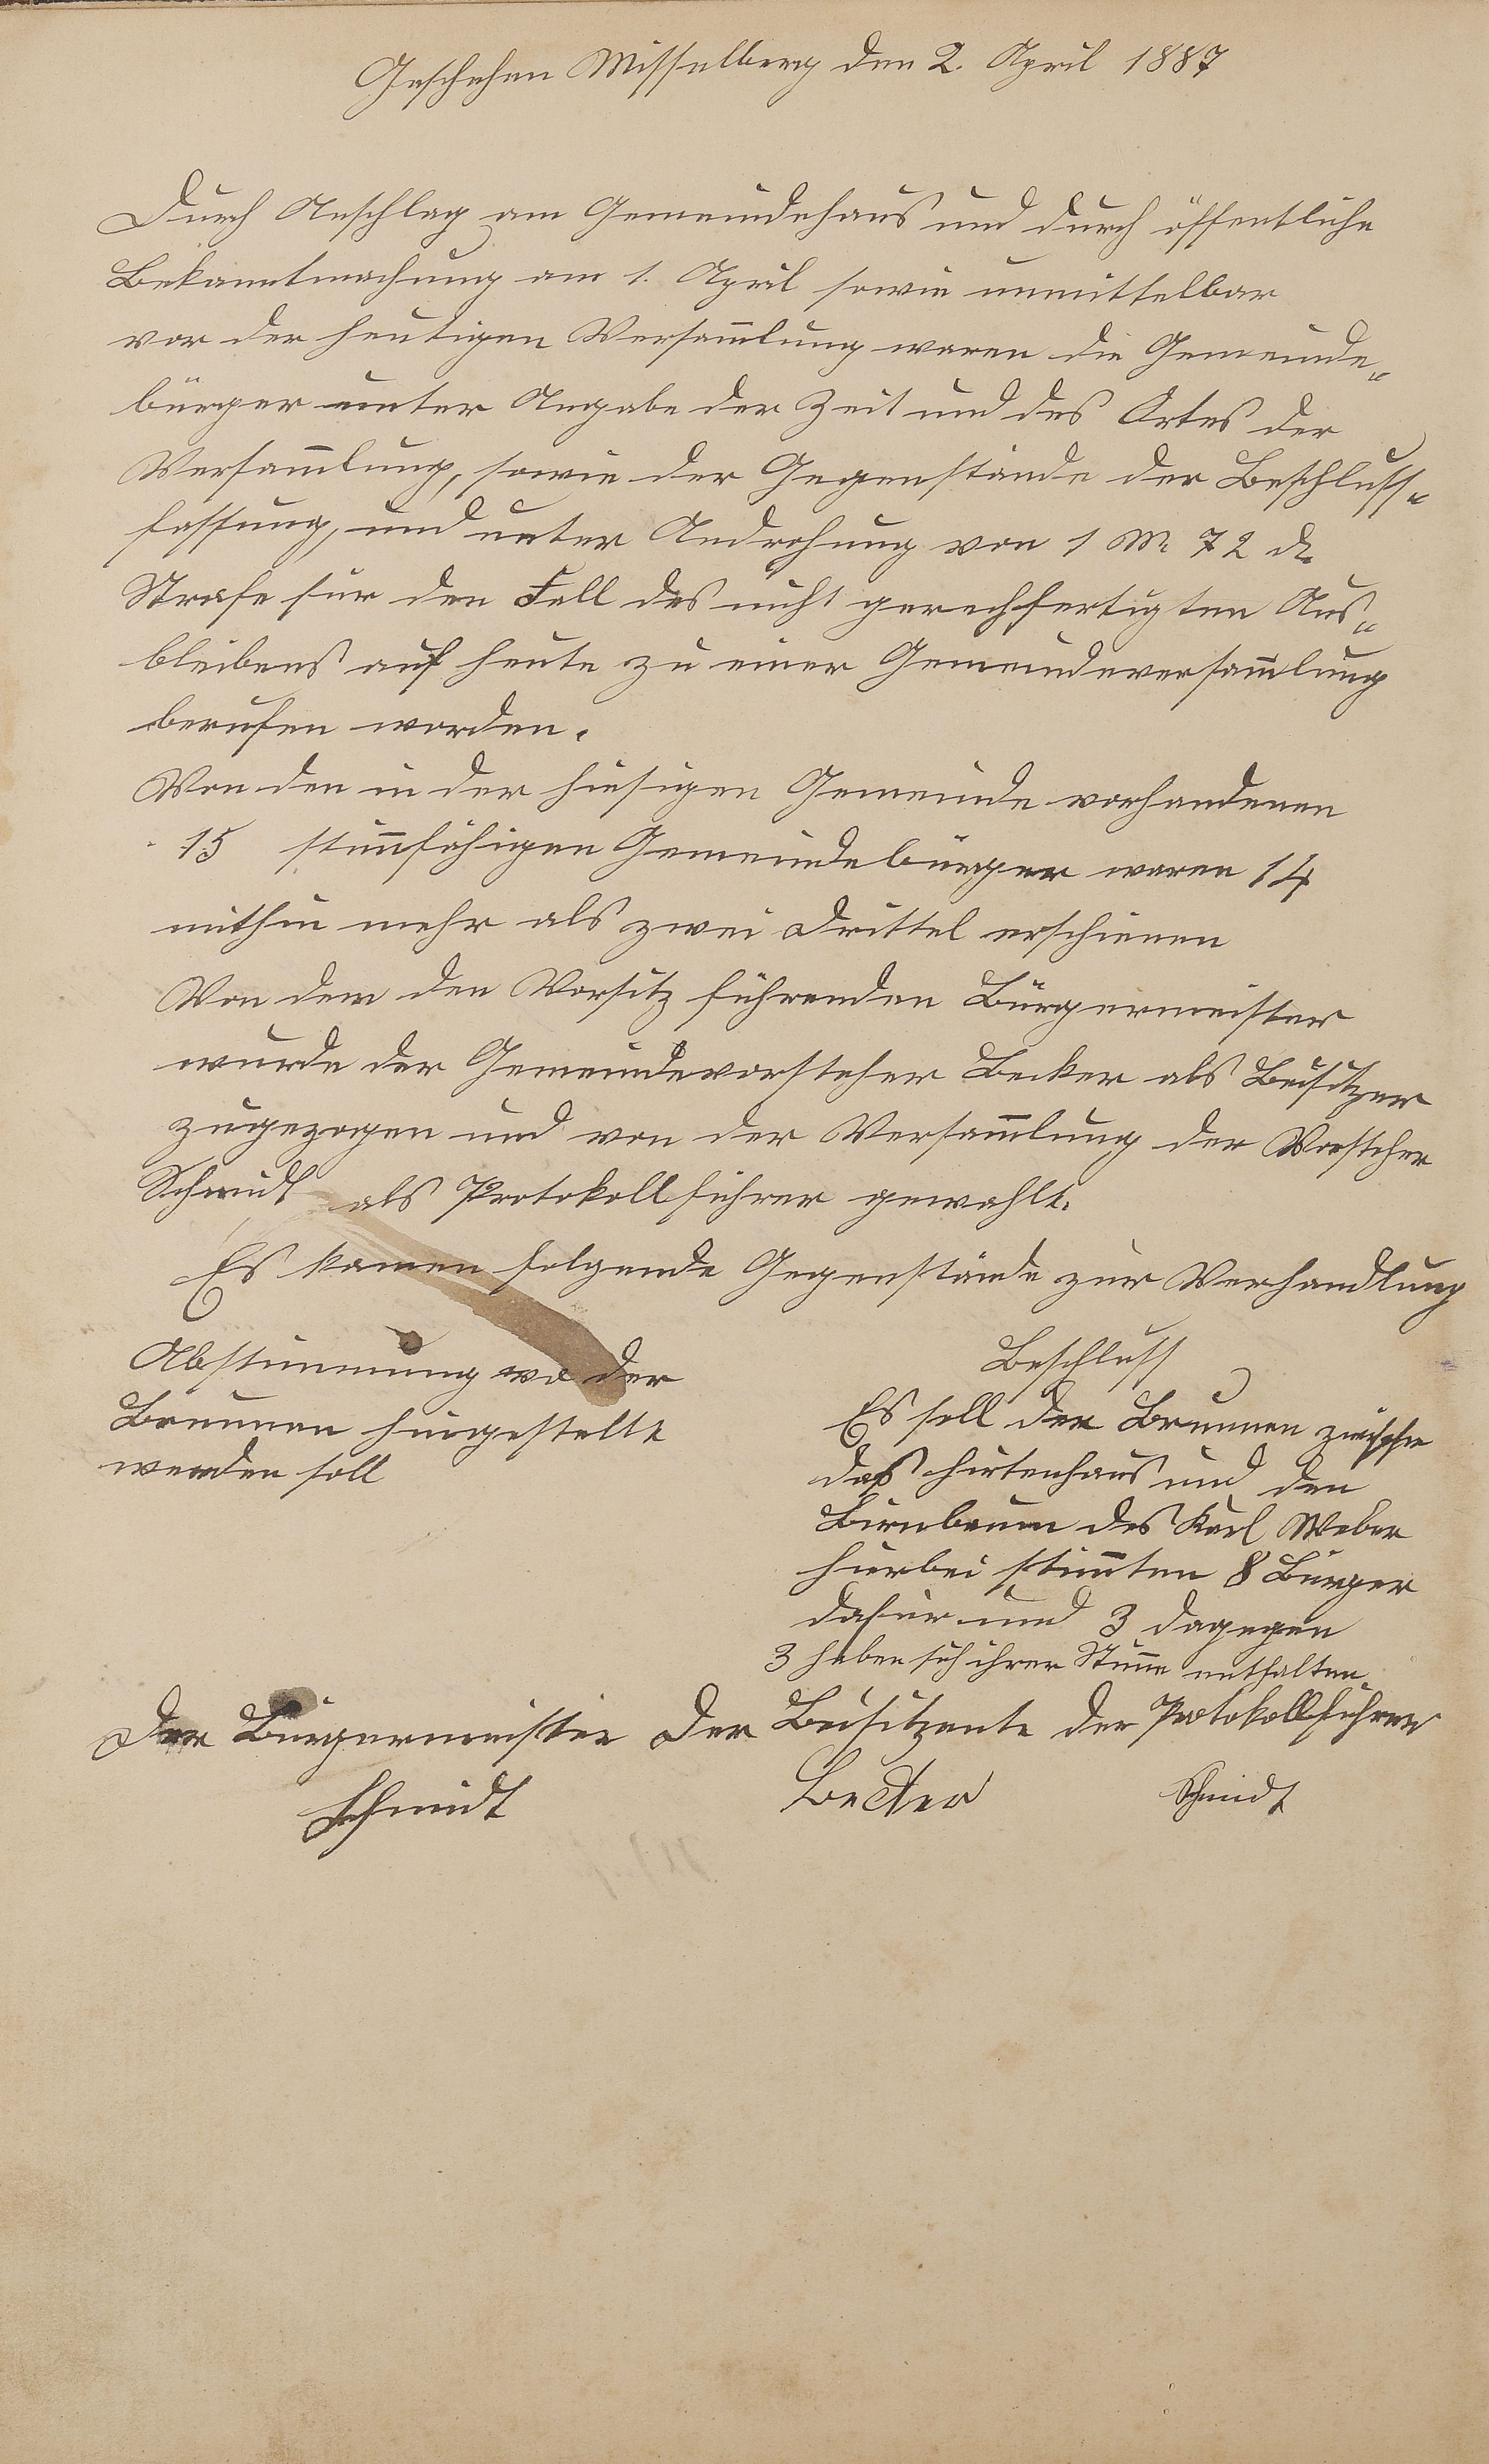 Geschehen Misselberg den 2. April 1887
Durch Anschlag am Gemeindehaus und durch öffentliche
Bekanntmachung am 1. April sowie unmittelbar
vor der heutigen Versam̄lung waren die Gemeinde„
bürger unter Angabe der Zeit und des Ortes der
Versam̄lung, sowie der Gegenstände der Beschluss„
fassung, und unter Androhung von 1 M. 72 d.
Strafe für den Fall des nicht gerechfertigten Aus„
bleibens auf heute zu einer Gemeindeversam̄lung
berufen worden.
Von den in der hiesigen Gemeinde vorhandenen
15 stim̄fähigen Gemeindebürger waren 14
mithin mehr als zwei Drittel erschienen
Von dem den Vorsitz führenden Bürgermeister
wurde der Gemeindevorsteher Becker als Beisitzer
zugezogen und von der Versam̄lung der Vorsteher
Schmidt als Protokollführer gewählt.
Es kamen folgende Gegenstände zur Verhandlung
Abstimmung wo der
Brunnen hingestellt
werden soll
Beschluss
Es soll der Brunnen zwischen
das Hirtenhaus und den
Birnbaum des Karl Weber
hierbei stim̄ten 8 Bürger
dafür und 3 dagegen
3 haben sich ihrer Stim̄e enthalten
Der Bürgermeister Der Beisitzente der Protokollführer
Schmidt Becker Schmidt